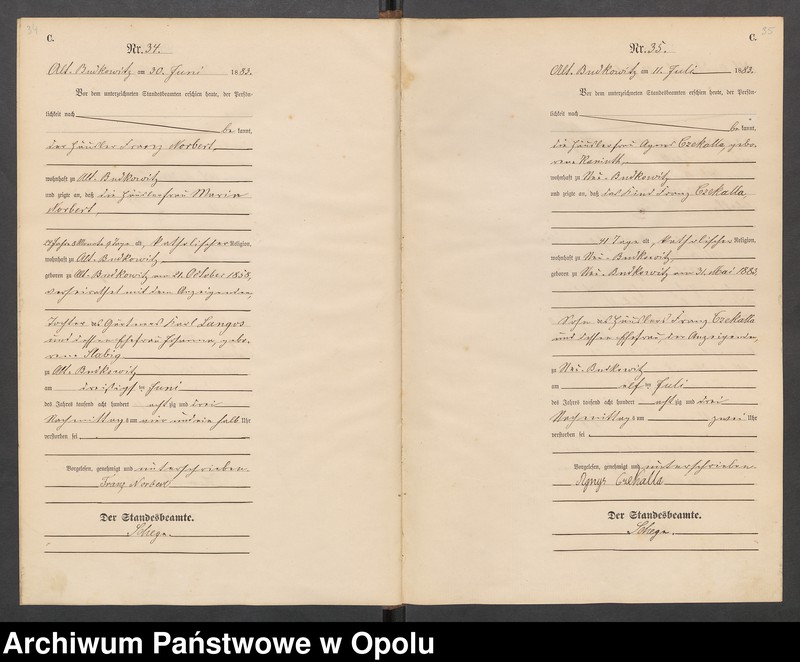 34
C.
Nr. 34.
Alt. Budkowitz am 30. Juni 1883.
Vor dem unterzeichneten Standesbeamten erschien heute, der Persön-
lichkeit nach
be kannt,
der Häusler Franz Norbert,
wohnhaft zu Alt. Budkowitz
und zeigte an, daß die Häuslerfrau Maria
Norbert,
8 Monate 9 Tage alt, katholischer Religion,
wohnhaft zu Alt. Budkowitz
geboren zu Alt. Budkowitz am 21. October 1858,
verheirathet mit dem Anzeigenden,
Tochter des Gärtners Karl Langos
und dessen Ehefrau Johanna, gebo-
rene Slabig
zu Alt. Budkowitz
am dreißigsten Juni
des Jahres tausend acht hundert acht zig und drei
Nachmittags um vier und ein halb Uhr
verstorben sei
Vorgelesen, genehmigt und unterschrieben.
Franz Norbert
Der Standesbeamte.
Schega.
35
C.
Nr. 35.
Alt. Budkowitz am 11. Juli 1883.
Vor dem unterzeichneten Standesbeamten erschien heute, der Persön-
lichkeit nach
be kannt,
die Häuslerfrau Agnes Czekalla, gebo-
rene Kaniuth
wohnhaft zu Neu-Budkowitz
und zeigte an, daß das Kind Franz Czekalla,
41 Tage alt, katholischer Religion,
wohnhaft zu Neu-Budkowitz,
geboren zu Neu-Budkowitz am 31. Mai 1883
Sohn des Häuslers Franz Czekalla
und dessen Ehefrau, der Anzeigenden,
zu Neu-Budkowitz
am elften Juli
des Jahres tausend acht hundert acht zig und drei
Nachmittags um zwei Uhr
verstorben sei
Vorgelesen, genehmigt und unterschrieben.
Agnys Czekalla
Der Standesbeamte.
Schega.
Archiwum Państwowe w Opolu